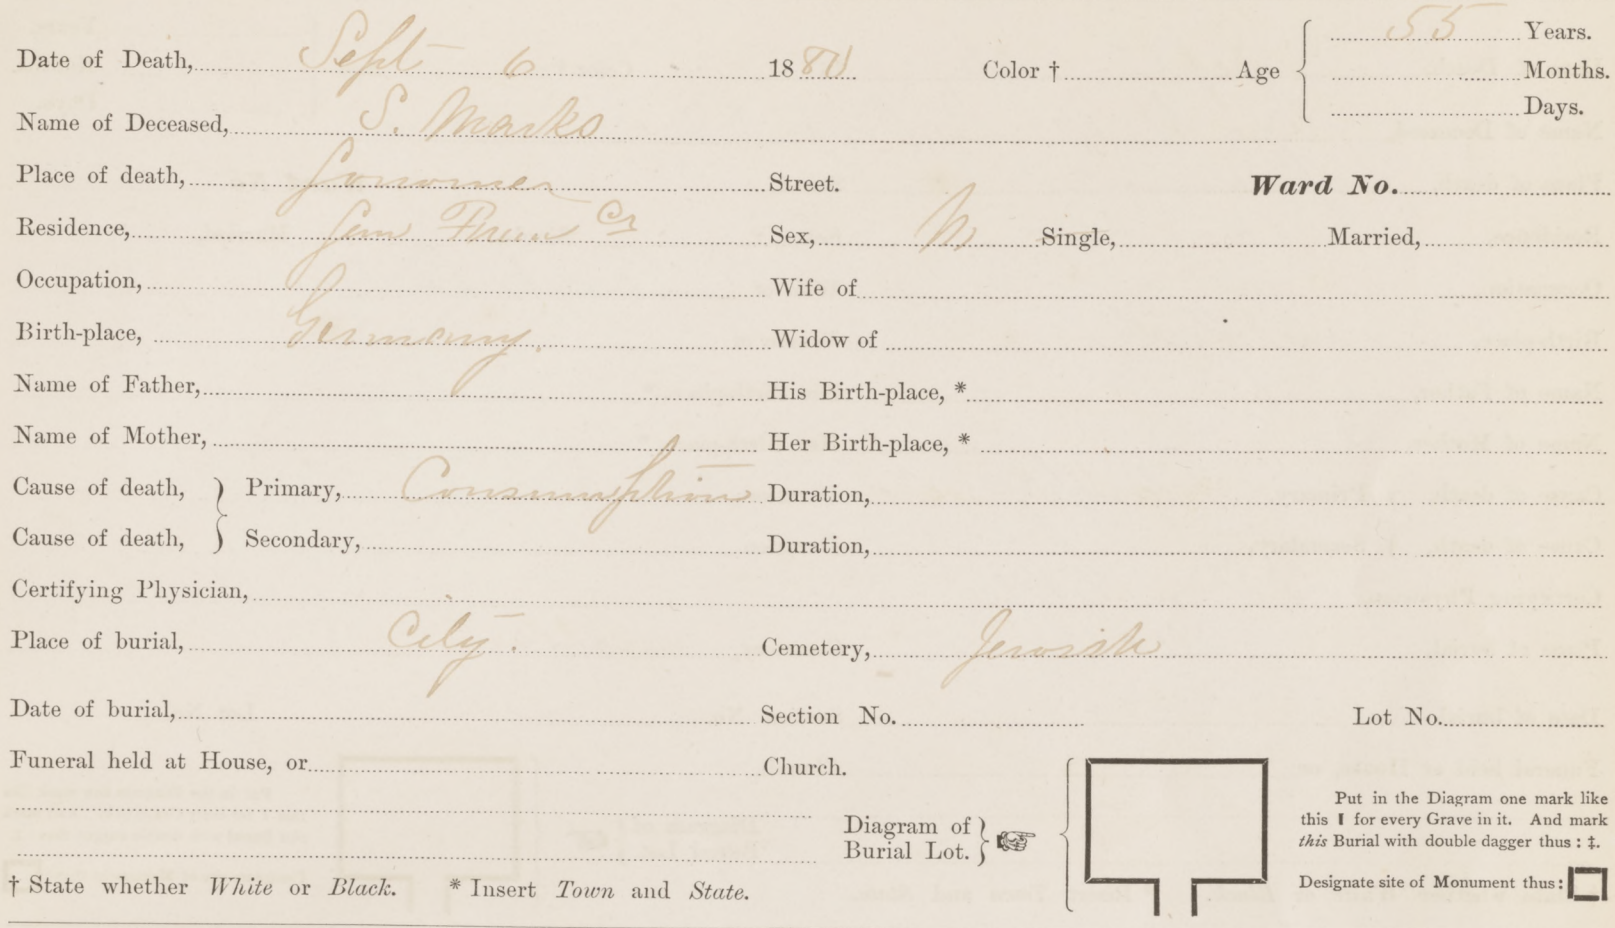 55 Years.
Date of Death, Sept 6 1880 Color † Age Months.
Days.
Name of Deceased, S. Marks
Place of death, Sonoma Street. Ward No.
Residence, San Sex, M Single, Married,
Occupation, Wife of
Birth-place, Germany. Widow of
Name of Father, His Birth-place, *
Name of Mother, Her Birth-place, *
Cause of death, } Primary, Consumption Duration,
Cause of death, } Secondary, Duration,
Certifying Physician,
Place of burial, City. Cemetery, Jewish
Date of burial, Section No. Lot No.
Funeral held at House, or Church.
Put in the Diagram one mark like
this ❙ for every Grave in it. And mark
this Burial with double dagger thus : ‡.
Diagram of
Burial Lot. } ☞ {
Designate site of Monument thus:
† State whether White or Black. * Insert Town and State.